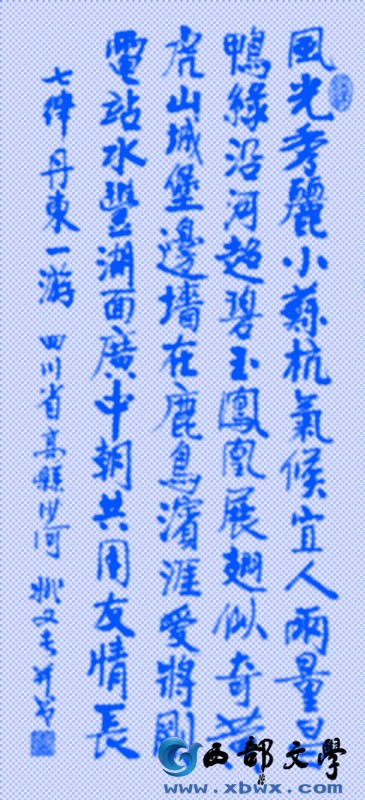 風光秀麗小蘇杭氣候宜人雨量昌
鴨綠沿河超碧玉鳳凰展翅似奇
虎山城堡邊墻在鹿鳥濱涯愛將剛
電站水豐湖面廣中朝共用友情長
七律 丹東一游 四川省高縣沙河 姚又
西部文學
www.xbwx.com